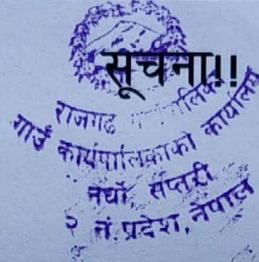 सूचना!!
राजगढ
गाउँ कार्यपालिकाको कार्यालय
नर्घो सप्तरी
२ नं. प्रदेश, नेपाल